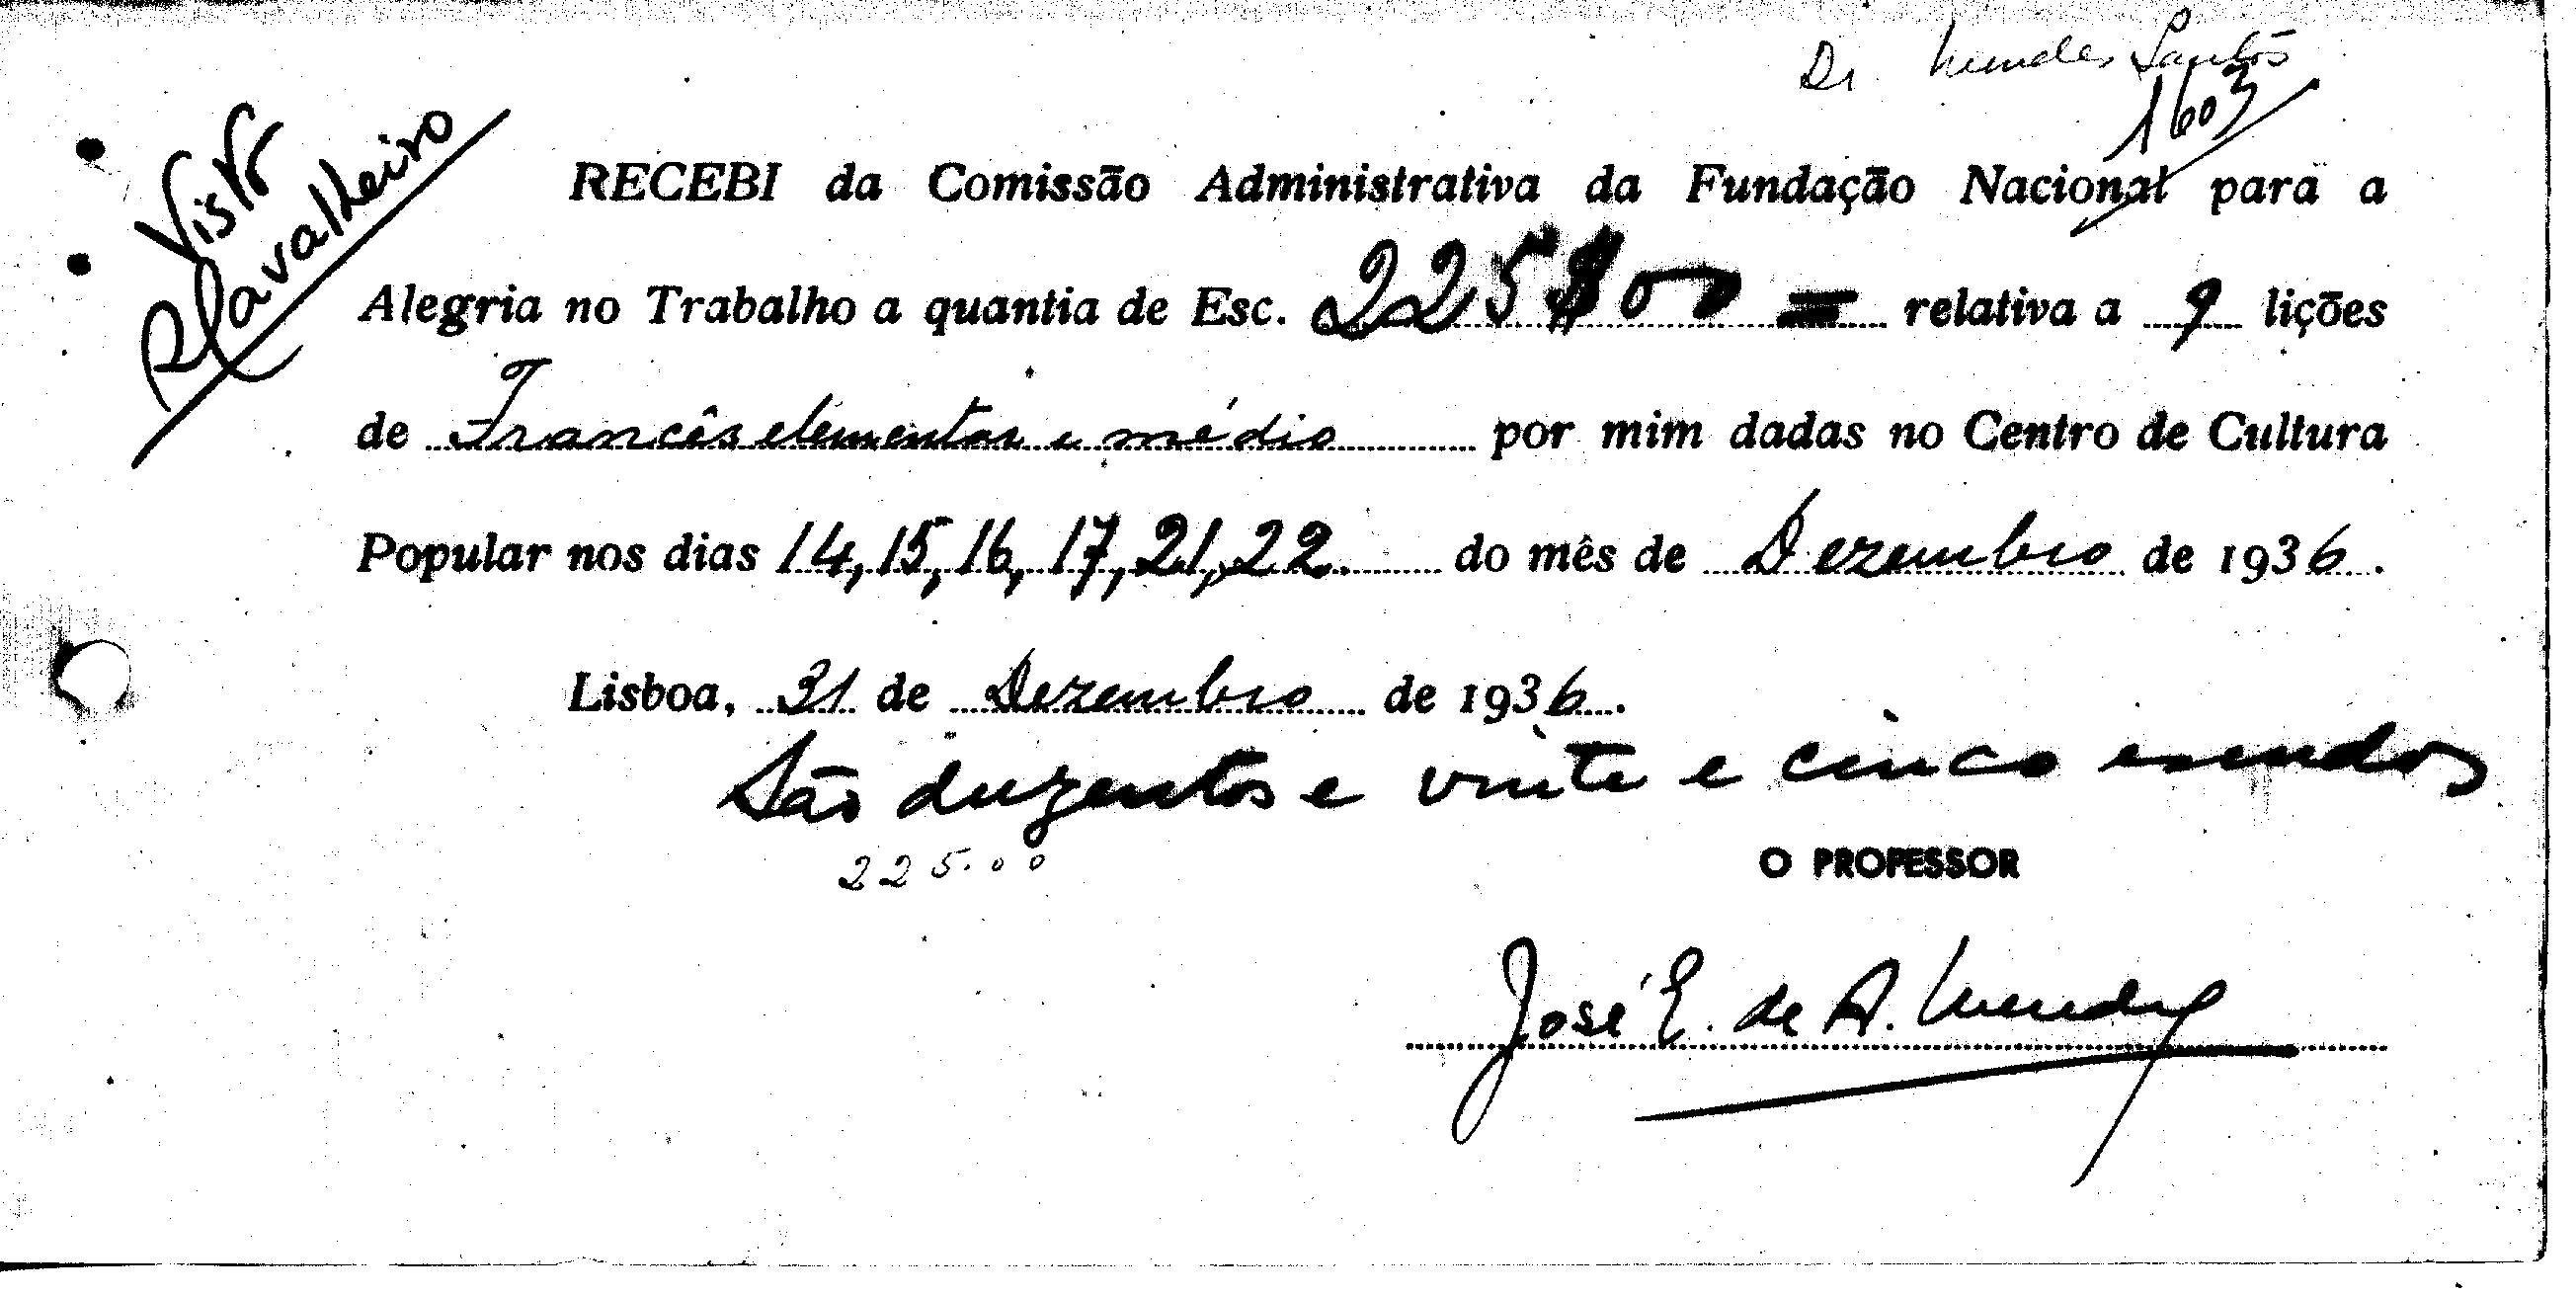 Dr Mendes Santos
1603
Visto
RCavalheiro
RECEBI da Comissão Administrativa da Fundação Nacional para a
Alegria no Trabalho a quantia de Esc. 225$00 = relativa a 9 lições
de Francês elementar e médio por mim dadas no Centro de Cultura
Popular nos dias 14, 15, 16, 17, 21, 22. do mês de Dezembro de 1936.
Lisboa, 31 de Dezembro de 1936.
São duzentos e vinte e cinco escudos
225.00
O PROFESSOR
José E. de A. Mendes